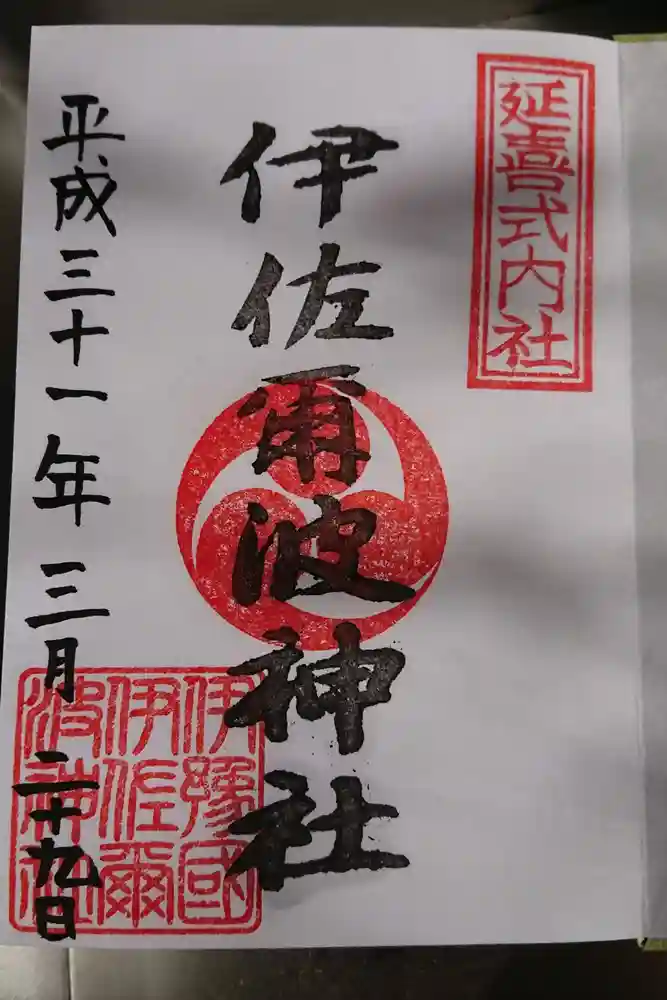 延喜式内社
伊佐爾波神社
伊豫國
伊佐爾
波神社
平成三十一年三月二十九日